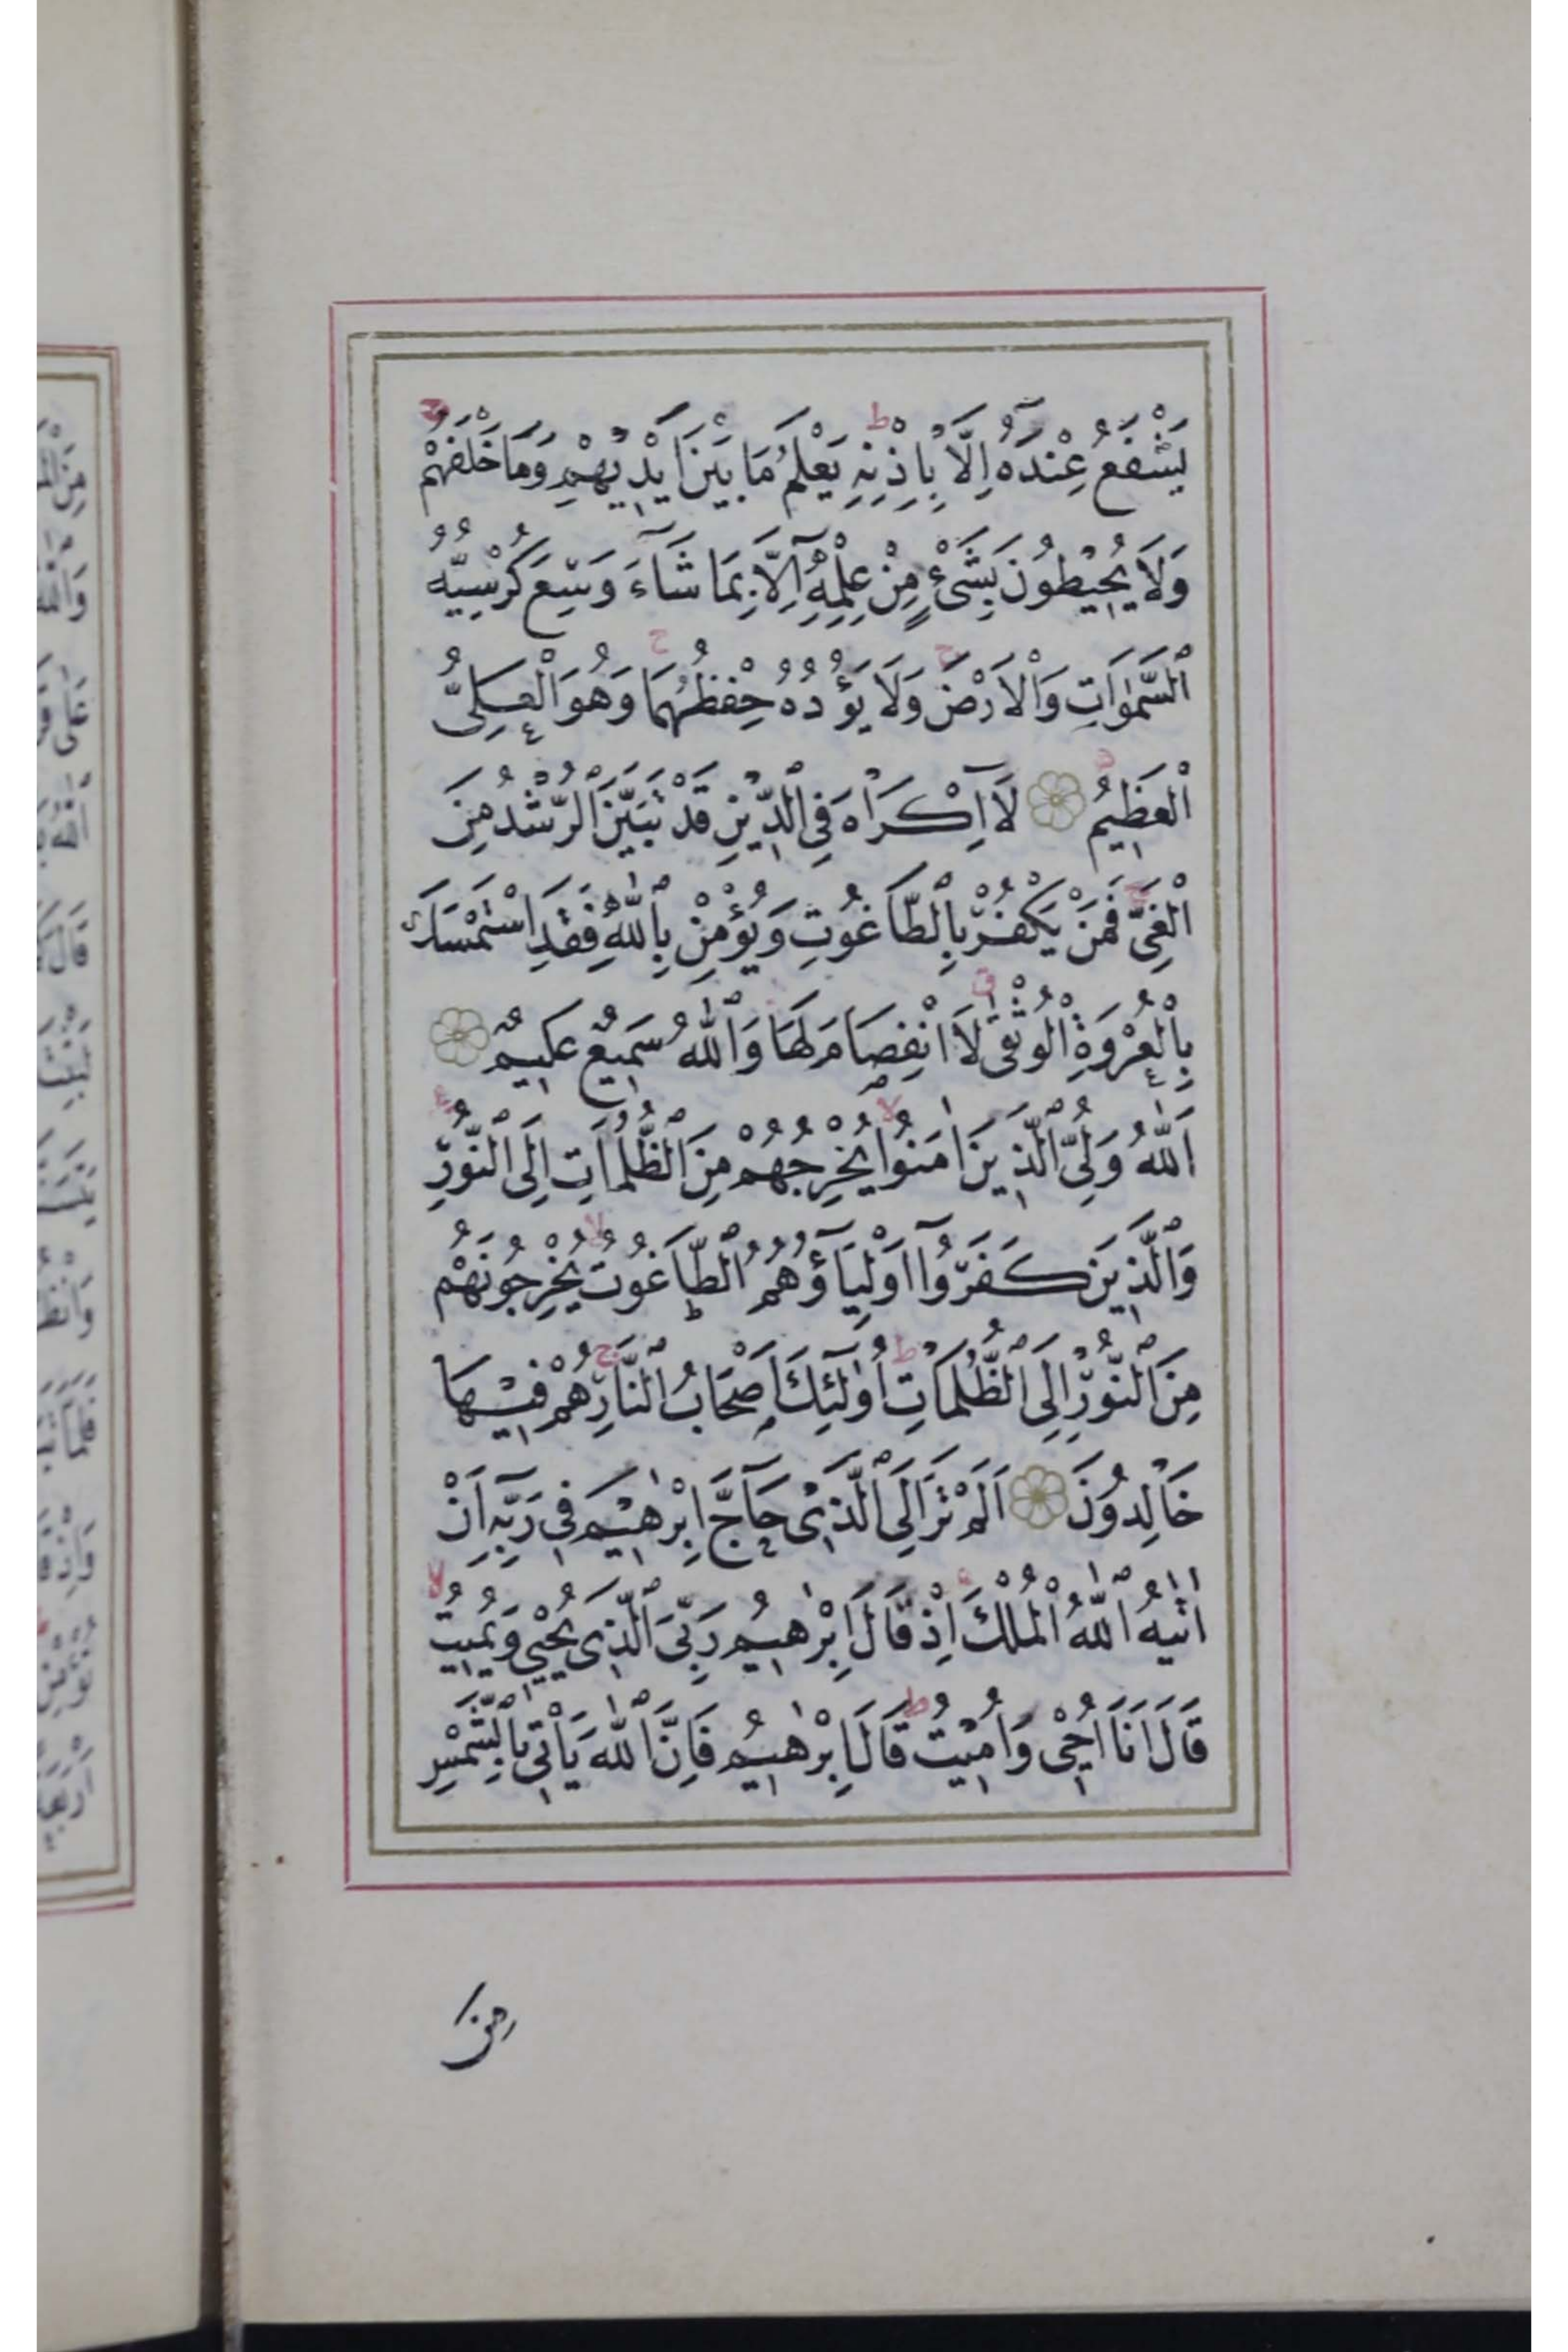 يَشْفَعُ عِنْدَهُٓ اِلَّا بِاِذْنِهِ يَعْلَمُ مَا بَيْنَ اَيْدِيْهِمْ وَمَا خَلْفَهُمْ
وَلَا يُحِيْطُونَ بِشَىْءٍ مِنْ عِلْمِهِٓ اِلَّا بِمَا شَاءَ وَسِعَ كُرْسِيُّهُ
ٱلسَّمٰوَاتِ وَالْاَرْضَ وَلَا يَؤُدُهُ حِفْظُهُمَا وَهُوَ الْعَلِىُّ
الْعَظِيمُ لَٓا اِكْرَاهَ فِى ٱلدِّيْنِ قَدْ تَبَيَّنَ ٱلرُّشْدُ مِنَ
الْغَىِّ فَمَنْ يَكْفُرْ بِالطَّاغُوتِ وَيُؤْمِنْ بِاللّٰهِ فَقَدِ اسْتَمْسَكَ
بِالْعُرْوَةِ الْوُثْقٰى لَا انْفِصَامَ لَهَا وَٱللّٰهُ سَمِيعٌ عَلِيمٌ
اَللّٰهُ وَلِىُّ ٱلَّذِينَ اٰمَنُوا يُخْرِجُهُمْ مِنَ ٱلظُّلُمَاتِ اِلَى ٱلنُّورِ
وَٱلَّذِينَ كَفَرُوٓا اَوْلِيَٓاؤُهُمُ ٱلطَّاغُوتُ يُخْرِجُونَهُمْ
مِنَ ٱلنُّورِ اِلَى ٱلظُّلُمَاتِ اُولٰٓئِكَ اَصْحَابُ ٱلنَّارِ هُمْ فِيْهَا
خَالِدُونَ اَلَمْ تَرَ اِلَى ٱلَّذِى حَٓاجَّ اِبْرٰهِيْمَ فِى رَبِّهِٓ اَنْ
اٰتٰيهُ ٱللّٰهُ الْمُلْكَ اِذْ قَالَ اِبْرٰهِيمُ رَبِّىَ ٱلَّذِى يُحْيِى وَيُمِيتُ
قَالَ اَنَا اُحْيِى وَاُمِيْتُ قَالَ اِبْرٰهِيمُ فَاِنَّ ٱللّٰهَ يَاْتِى بِالشَّمْسِ
مِنَ